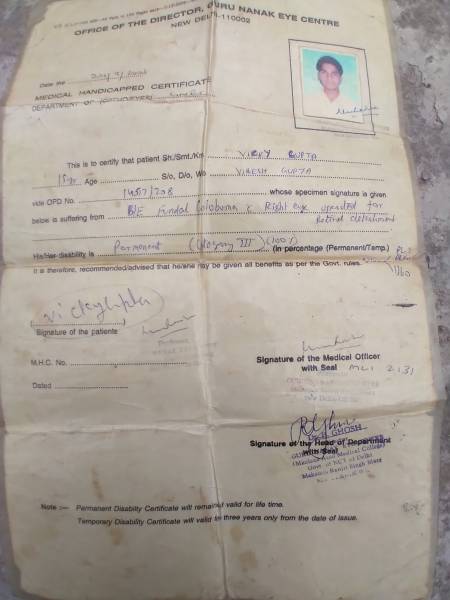 OFFICE OF THE DIRECTOR, GURU NANAK EYE CENTRE
NEW DELHI-110002
Date the
MEDICAL HANDICAPPED CERTIFICATE
DEPARTMENT OF
This is to certify that patient Sh./Smt./Km. VICKY GUPTA
15 yr Age S/o, D/o, W/o VIRESH GUPTA
vide OPD No. whose specimen signature is given
below is suffering from B/E Fundal Coloboma c Right eye operated for
Retinal detachment
His/Her disability is Permanent (Category III) (100%) (in percentage (Permanent/Temp.)
It is therefore, recommended/advised that he/she may be given all benefits as per the Govt. rules.
vickygupta
Signature of the patiente
M.H.C. No.
Dated
Signature of the Medical Officer
with Seal
GHOSH
Signature of the Head of Department
with Seal
(Maulana Azad Medical College)
Govt. of NCT of Delhi
Maharaja Ranjit Singh Marg
Note :— Permanent Disability Certificate will remained valid for life time.
Temporary Disability Certificate will valid for three years only from the date of issue.